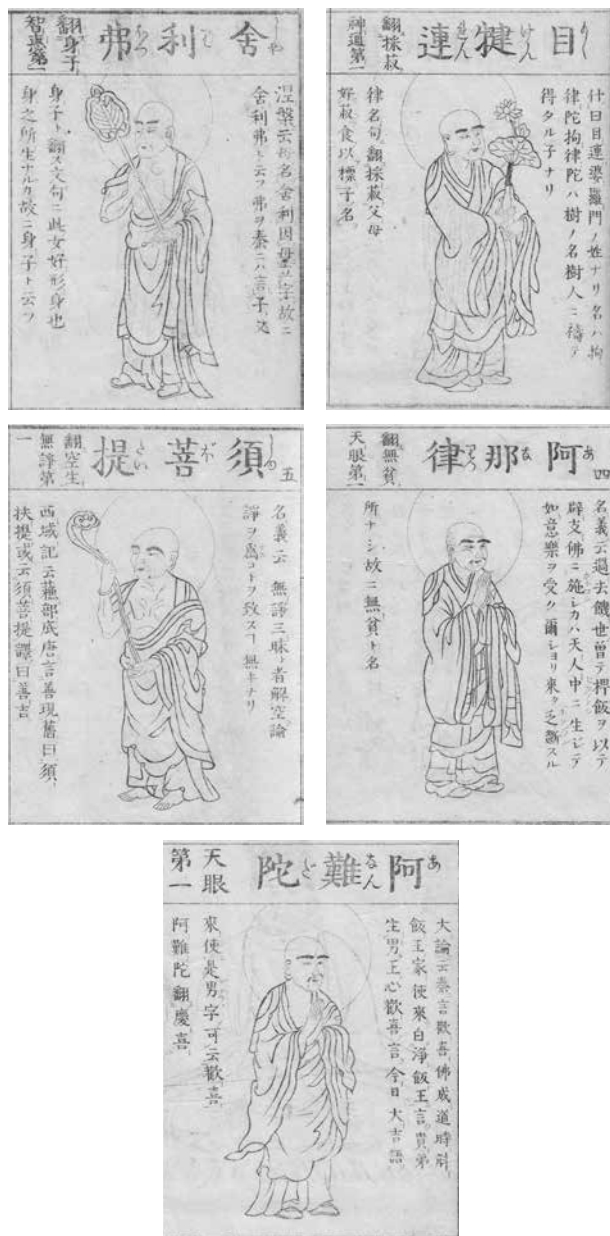 舍利弗
翻身子
智惠第一
涅槃云母名舍利因母立字故ニ
舍利弗ト云フ弗ヲ秦ニハ言子又
身子ト翻ス文句ニ此女好形身也
身之所生ナルカ故ニ身子ト云フ
目犍連
翻採菽
神通第一
什曰目連婆羅門ノ姓ナリ名ハ拘
律陀拘律陀ハ樹ノ名樹人ニ禱テ
得タル子ナリ
律名句翻採菽父母
好菽食以標子名
五
須菩提
翻空生
無諍第
一
名義云無諍三昧ト者解空論
諍ヲ為コトヲ致スヿ無キナリ
西域記云蘓部底唐言善現舊曰須
扶提或云須菩提譯曰善吉
四
阿那律
翻無貧
天眼第一
名義云過去餓世曽テ稗飯ヲ以テ
辟支佛ニ施シカハ天人中ニ生シテ
如意樂ヲ受ク爾ヨリ來タ乏斷スル
所ナシ故ニ無貧ト名
阿難陀
天眼
第一
大論云秦言歡喜佛成道時斛
飯王家使來白淨飯王言貴弟
生男王心歡喜言今日大吉語
來使是男字可云歡喜
阿難陀翻慶喜